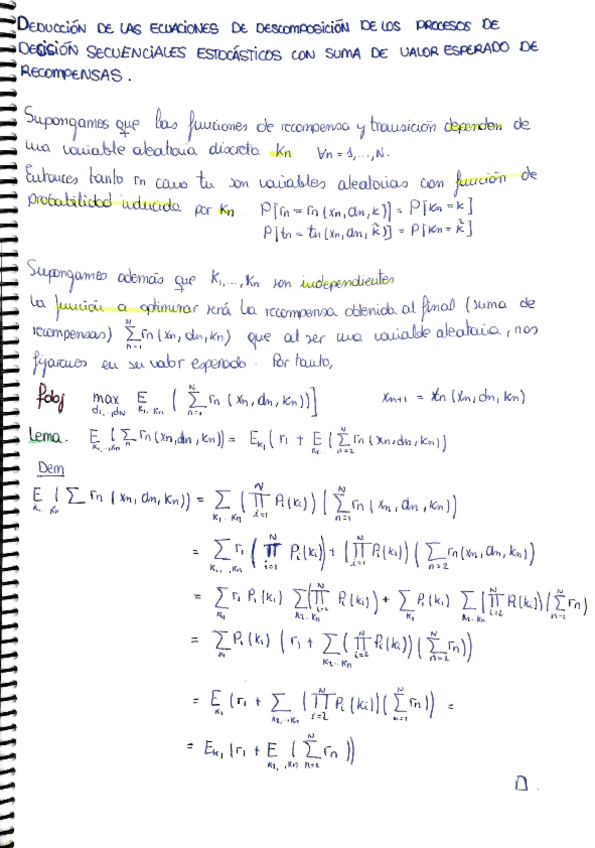 DEDUCCIÓN DE LAS ECUACIONES DE DESCOMPOSICIÓN DE LOS PROCESOS DE
DECISIÓN SECUENCIALES ESTOCÁSTICOS CON SUMA DE VALOR ESPERADO DE
RECOMPENSAS.
Supongamos que las funciones de recompensa y transición dependen de
una variable aleatoria discreta Kn ∀n = 1,...,N.
Entonces tanto rn como tn son variables aleatorias con función de
probabilidad inducida por Kn. P[rn = rn(xn, dn, k)] = P[Kn = k]
P[tn = tn(xn, dn, k̃)] = P[Kn = k̃]
Supongamos además que K1,...,Kn son independientes
La función a optimizar será la recompensa obtenida al final (suma de
recompensas) ∑_{n=1}^{N} rn(xn, dn, kn) que al ser una variable aleatoria, nos
fijaremos en su valor esperado. Por tanto,
fobj max_{d1,..,dN} E_{k1,..,kn} [∑_{n=1}^{N} rn(xn, dn, kn))] xn+1 = tn(xn, dn, kn)
Lema. E_{k1,..,kn} (∑_n rn(xn, dn, kn)) = E_{k1} (r1 + E_{k2..} (∑_{n=2}^{N} rn(xn, dn, kn))
Dem
E_{k1..kn} (∑ rn(xn, dn, kn)) = ∑_{k1..kn} (∏_{i=1}^{N} Pi(ki)) (∑_{n=1}^{N} rn(xn, dn, kn))
= ∑_{k1,..,kn} r1 (∏_{i=1}^{N} Pi(ki)) + (∏_{i=1}^{N} Pi(ki)) (∑_{n=2} rn(xn, dn, kn))
= ∑_{k1} r1 P1(k1) ∑_{k2..kn} (∏_{i=2}^{N} Pi(ki)) + ∑_{k1} P1(k1) ∑_{k2..kn} (∏_{i=2}^{N} Pi(ki)) (∑^{N} rn)
= ∑_{k1} P1(k1) (r1 + ∑_{k2..kn} (∏_{i=2}^{N} Pi(ki)) (∑_{n=2}^{N} rn))
= E_{k1} (r1 + ∑_{k2,..,kn} (∏_{i=2}^{N} Pi(ki)) (∑^{N} rn)) =
= E_{k1} (r1 + E_{k2,..,kn} (∑_{n=2}^{N} rn))
□.